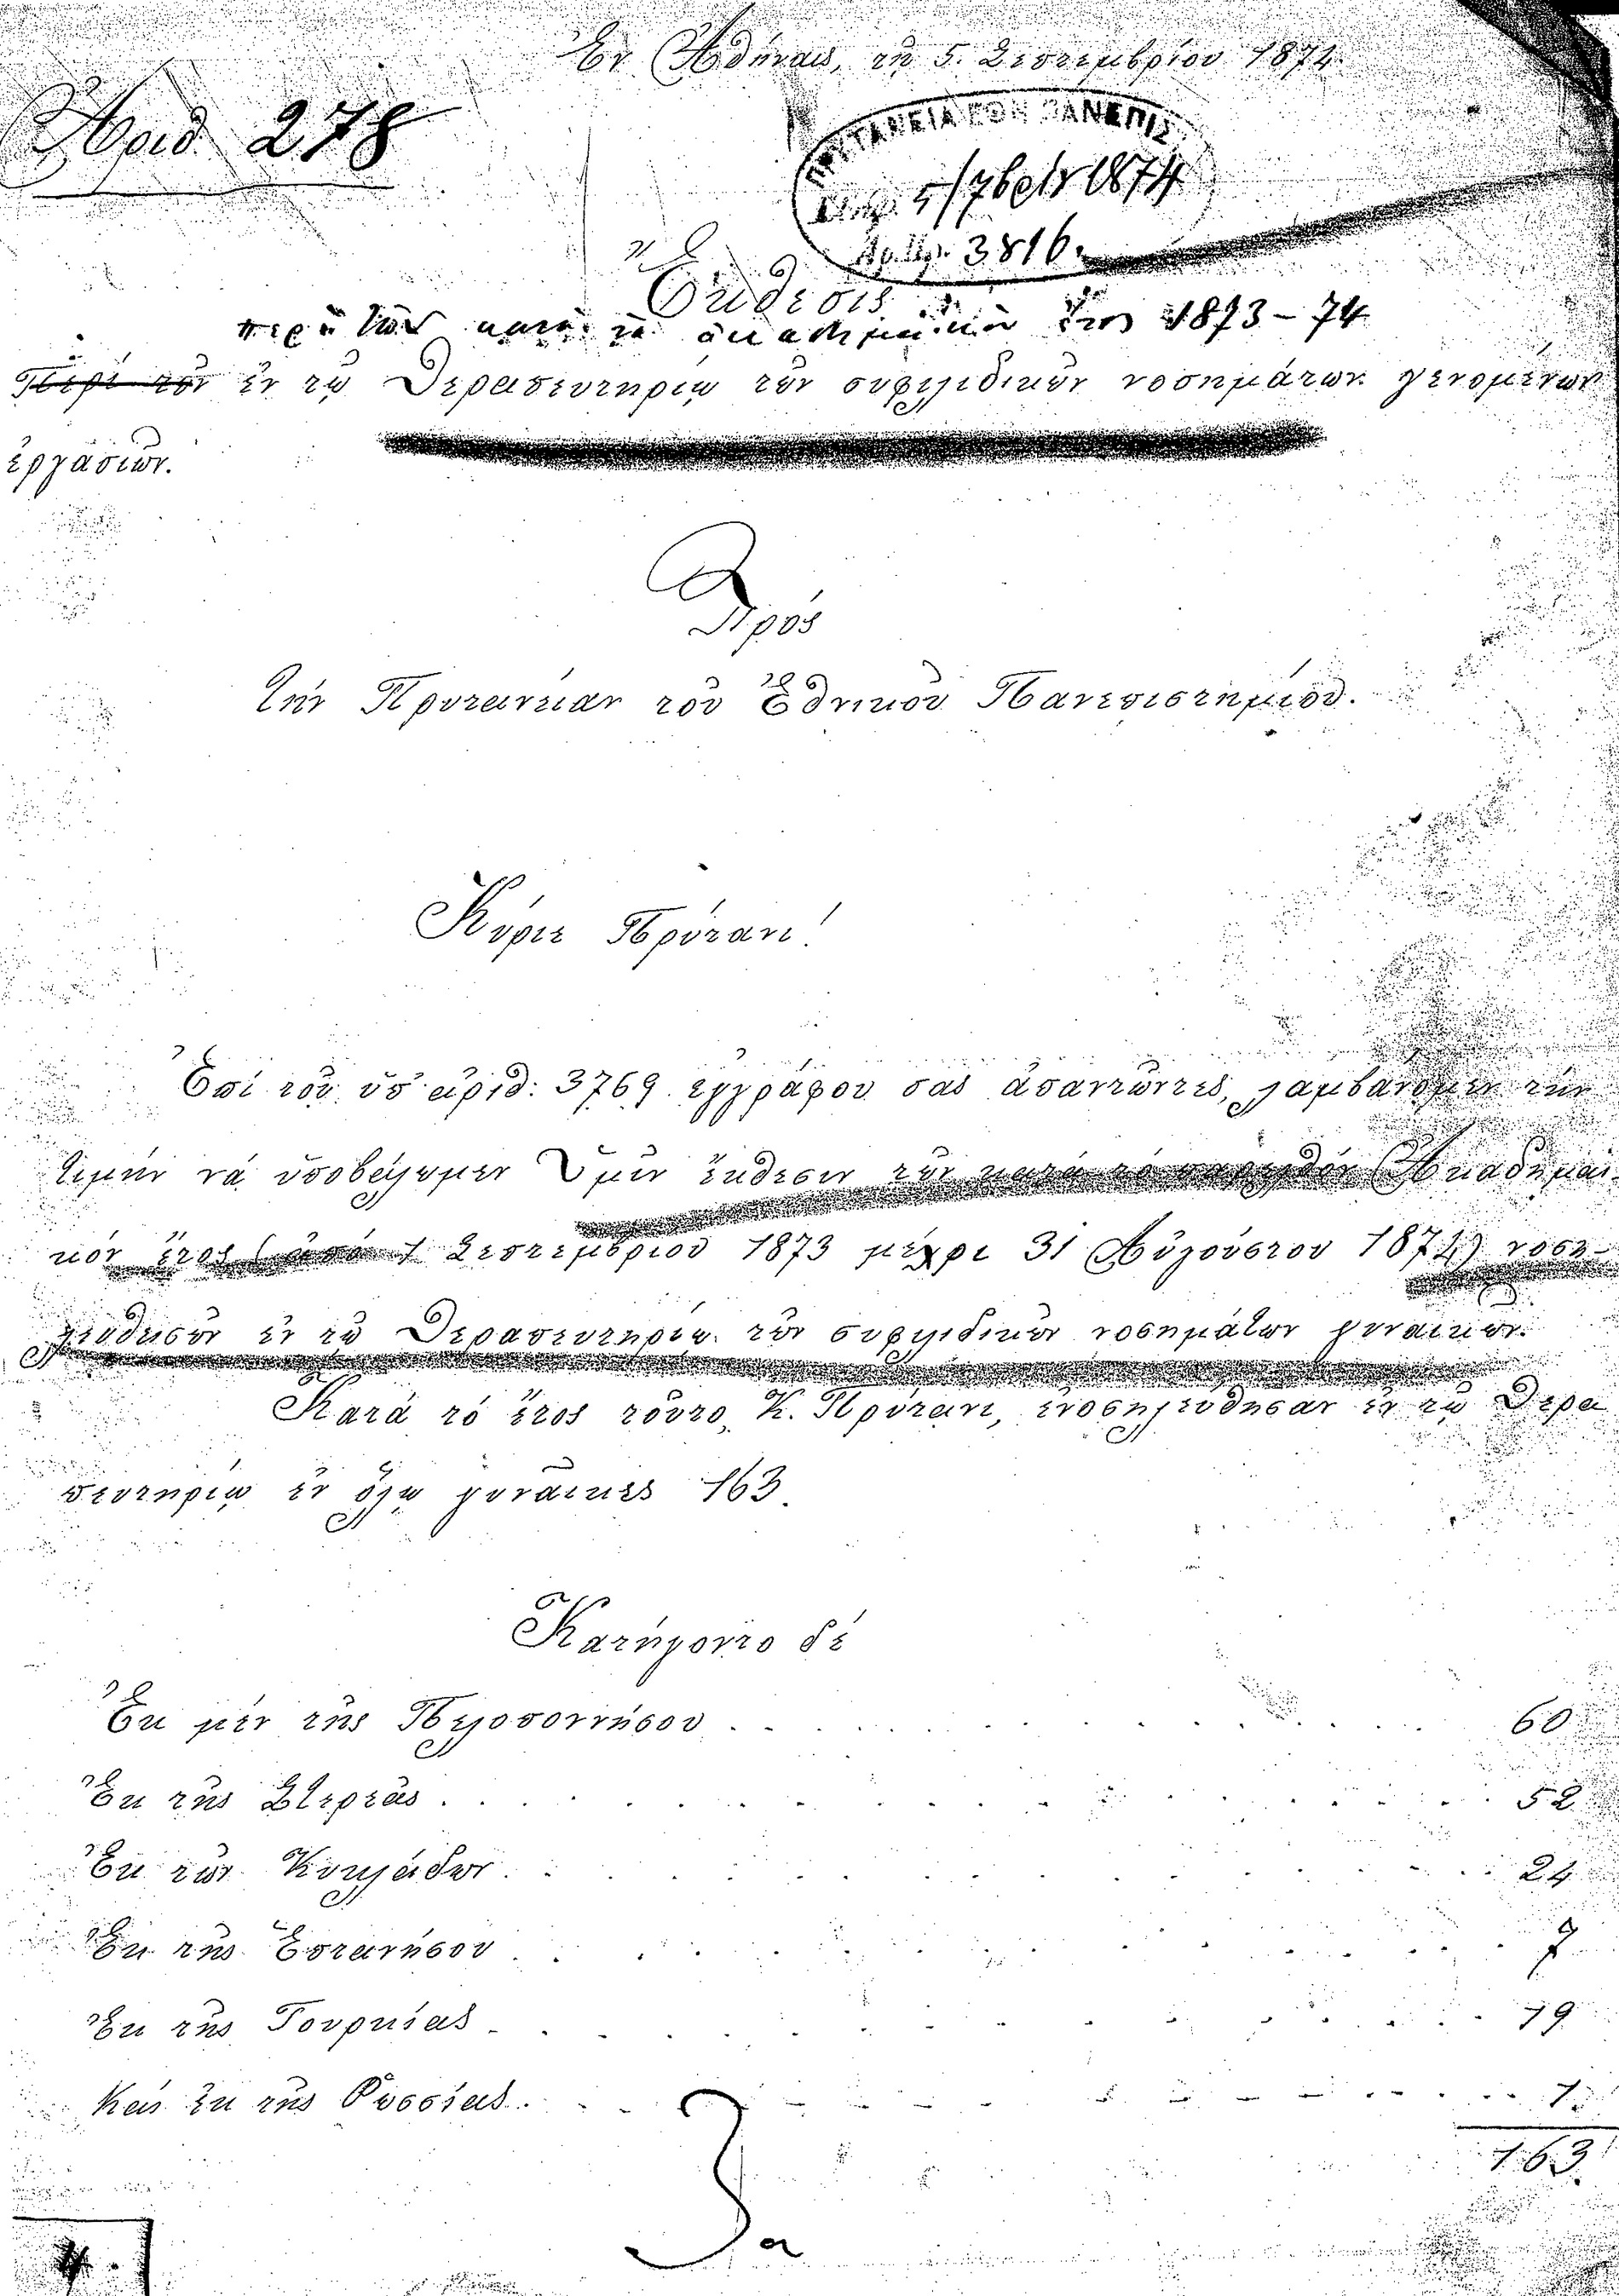 Ἐν Ἀθήναις, τῇ 5 Σεπτεμβρίου 1874
Ἀριθ 278
ΠΡΥΤΑΝΕΙΑ ΤΟΥ ΠΑΝΕΠΙΣ
5/7βρίου 1874
Ἀρ. Πρ. 3816.
Ἔκθεσις
περὶ τῶν κατὰ τὸ ἀκαδημαϊκὸν ἔτος 1873-74
Περὶ τῶν ἐν τῷ Θεραπευτηρίῳ τῶν συφιλιδικῶν νοσημάτων γενομένων
ἐργασιῶν.
Πρός
Τὴν Πρυτανείαν τοῦ Ἐθνικοῦ Πανεπιστημίου.
Κύριε Πρύτανι!
Ἐπὶ τοῦ ὑπ' ἀριθ: 3769 ἐγγράφου σας ἀπαντῶντες, λαμβάνομεν τὴν
τιμὴν νὰ ὑποβάλωμεν Ὑμῖν ἔκθεσιν τῶν κατὰ τὸ παρελθὸν Ἀκαδημαϊ-
κὸν ἔτος (ἀπὸ 1 Σεπτεμβρίου 1873 μέχρι 31 Αὐγούστου 1874) νοση-
λευθεισῶν ἐν τῷ Θεραπευτηρίῳ τῶν συφιλιδικῶν νοσημάτων γυναικῶν.
Κατὰ τὸ ἔτος τοῦτο, Κ. Πρύτανι, ἐνοσηλεύθησαν ἐν τῷ Θερα
πευτηρίῳ ἐν ὅλῳ γυναῖκες 163.
Κατήγοντο δέ
Ἐκ μὲν τῆς Πελοποννήσου 60
Ἐκ τῆς Στερεᾶς 52
Ἐκ τῶν Κυκλάδων 24
Ἐκ τῆς Ἑπτανήσου 7
Ἐκ τῆς Τουρκίας 19
Καὶ ἐκ τῆς Ῥωσσίας 1
163.
3α